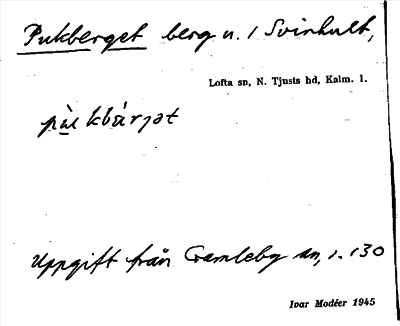 Pukberget berg u. / Svinhult,
Lofta sn, N. Tjusts hd, Kalm. l.
Uppgift från Gamleby sn, s. 130
Ivar Modéer 1945